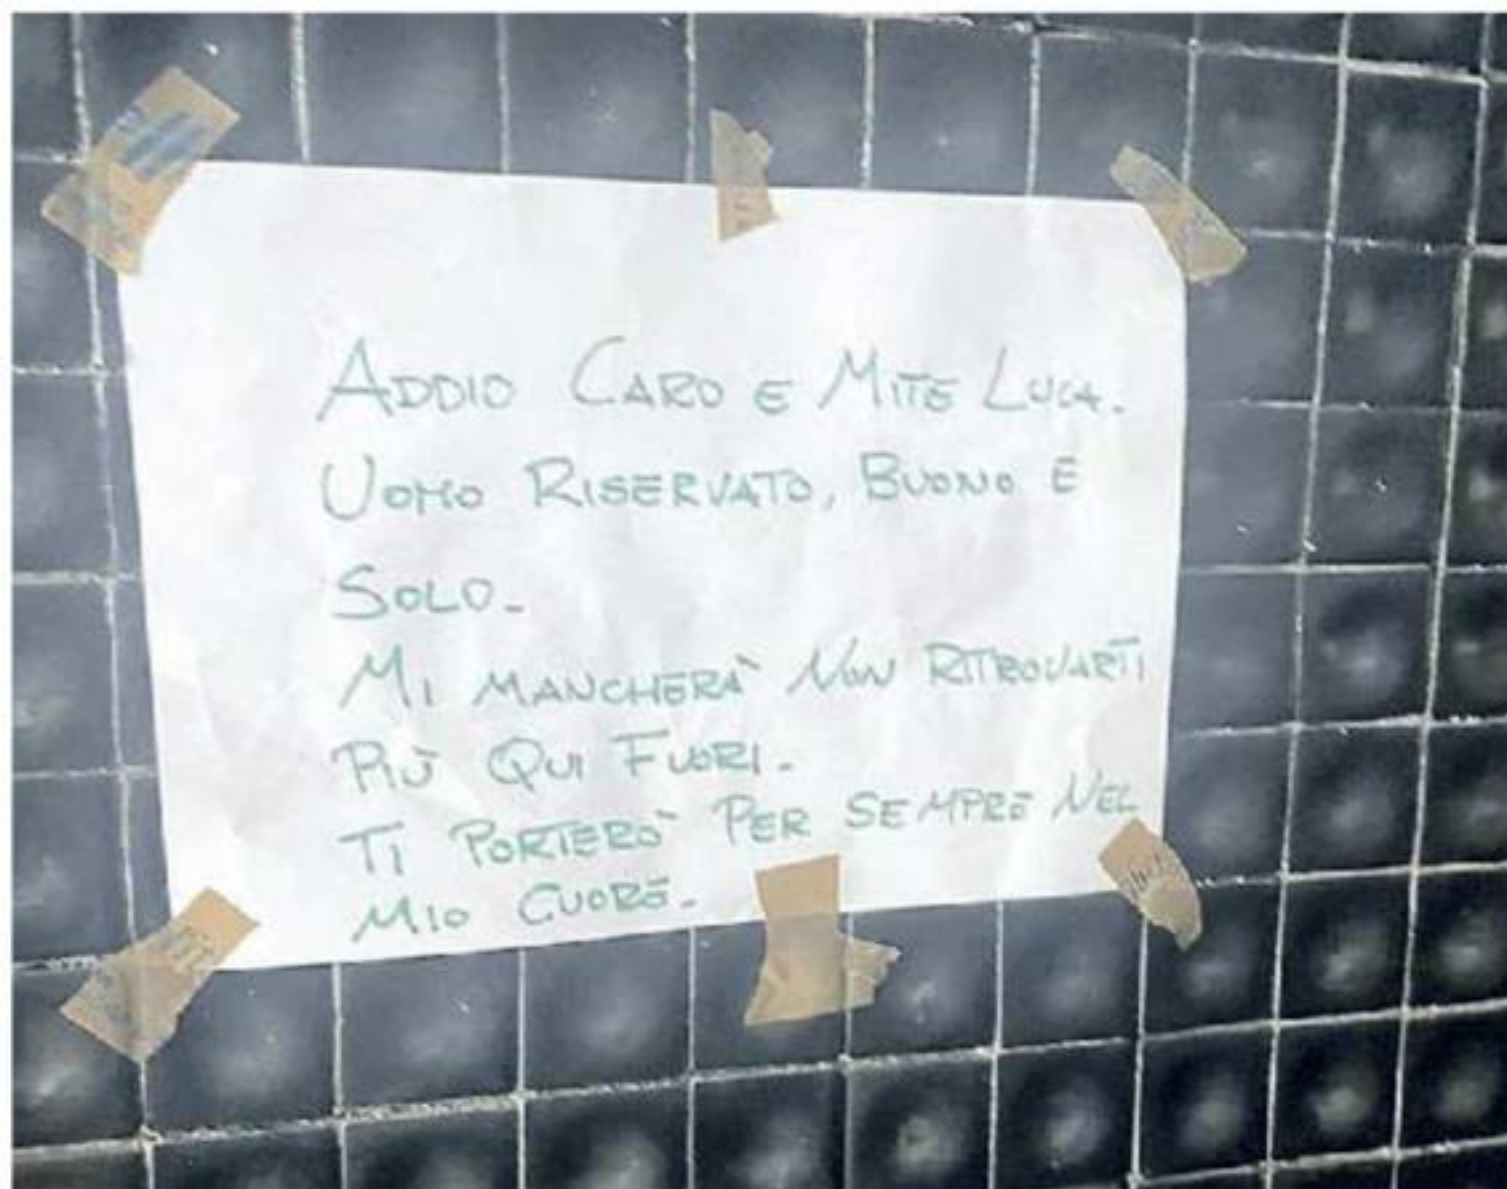 ADDIO CARO E MITE LUCA.
UOMO RISERVATO, BUONO E
SOLO-
MI MANCHERA` NON RITROVARTI
PIÙ QUI FUORI-
TI PORTERO` PER SEMPRE NEL
MIO CUORE-